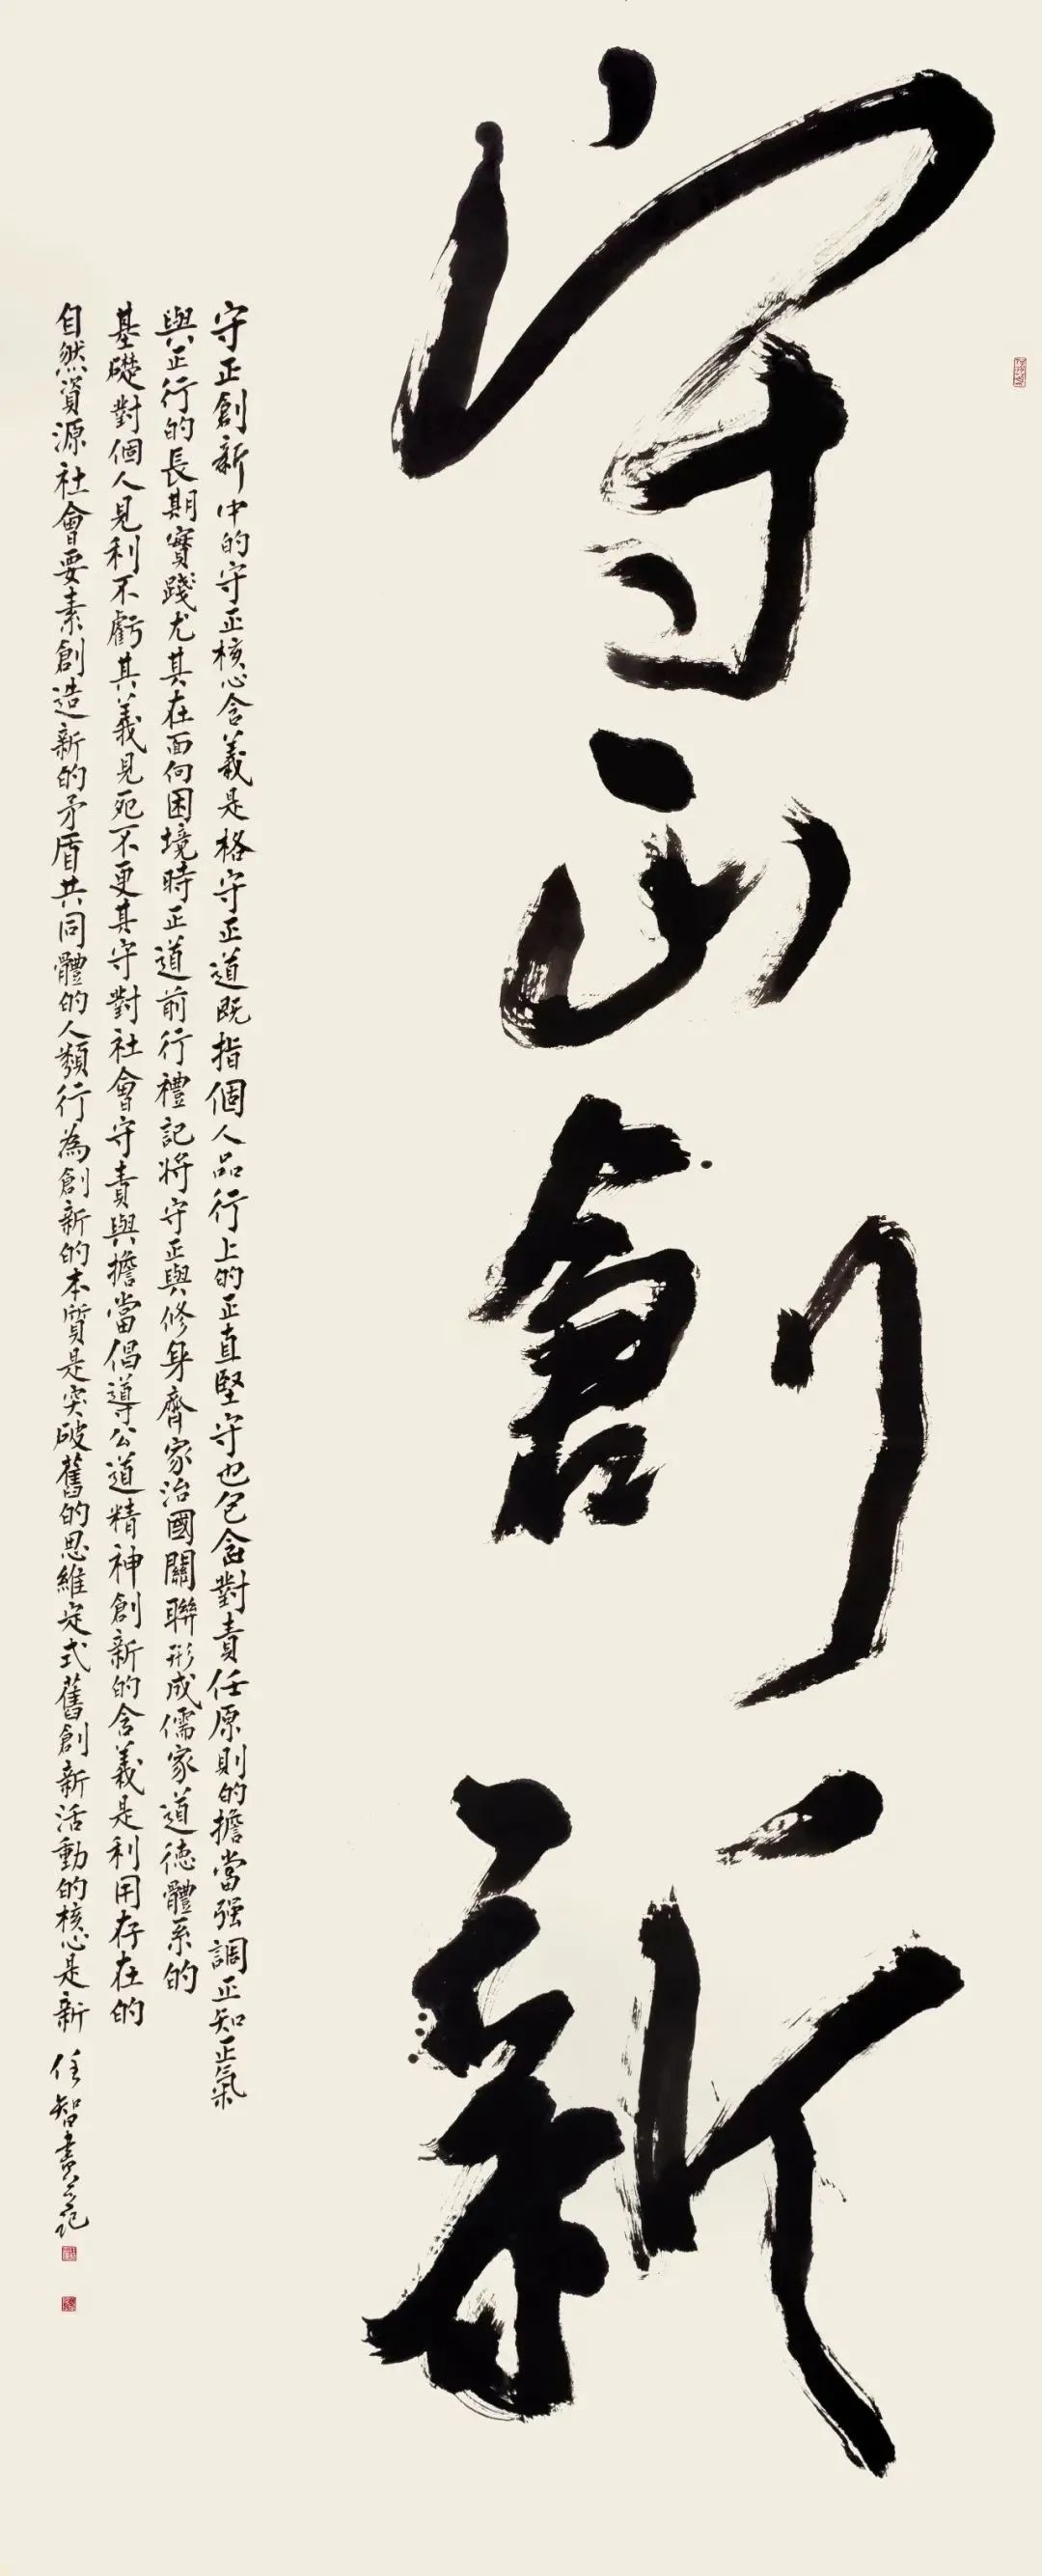 守正創新
守正創新中的守正核心含義是格守正道既指個人品行上的正直堅守也包含對責任原則的擔當强調正知正氣
與正行的長期實踐尤其在面向困境時正道前行禮記將守正與修身齊家治國關聯形成儒家道德體系的
基礎對個人見利不虧其義見死不更其守對社會守責與擔當倡導公道精神創新的含義是利用存在的
自然資源社會要素創造新的矛盾共同體的人類行為創新的本質是突破舊的思維定式舊創新活動的核心是新
任智書並記